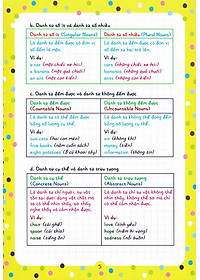 b. Danh từ số ít và danh từ số nhiều
Danh từ số ít (Singular Nouns)
Là danh từ đếm được có đơn vị
số đếm là một.
Ví dụ:
a cat (một chiếc xe hơi)
a banana (một quả chuối)
an ant (một con kiến)
Danh từ số nhiều (Plural Nouns)
Là danh từ đếm được có đơn vị
số đếm từ hai trở lên.
Ví dụ:
cars (những chiếc xe hơi)
bananas (những quả chuối)
ants (những con kiến)
c. Danh từ đếm được và danh từ không đếm được
Danh từ đếm được
(Countable Nouns)
Là danh từ có thể đếm được
bằng số lượng cụ thể.
Ví dụ:
two cats (hai con mèo)
five books (năm cuốn sách)
eight potatoes (8 củ khoai tây)
Danh từ không đếm được
(Uncountable Nouns)
Là danh từ không đếm được
bằng số lượng cụ thể.
Ví dụ:
money (tiền)
information (thông tin)
d. Danh từ cụ thể và danh từ trừu tượng
Danh từ cụ thể
(Concrete Nouns)
Là danh từ chỉ người, sự vật
tồn tại dưới dạng vật chất mà
ta có thể nhìn thấy, sờ thấy,
nghe thấy và cảm nhận được.
Ví dụ:
chair (cái ghế)
spoon (cái thìa)
noise (tiếng ồn)
Danh từ trừu tượng
(Abstract Nouns)
Là danh từ chỉ sự vật không thể
nhìn thấy, không thể sờ thấy
mà chỉ cảm nhận được.
Ví dụ:
love (tình yêu)
hope (niềm hi vọng)
sadness (nỗi buồn)
5